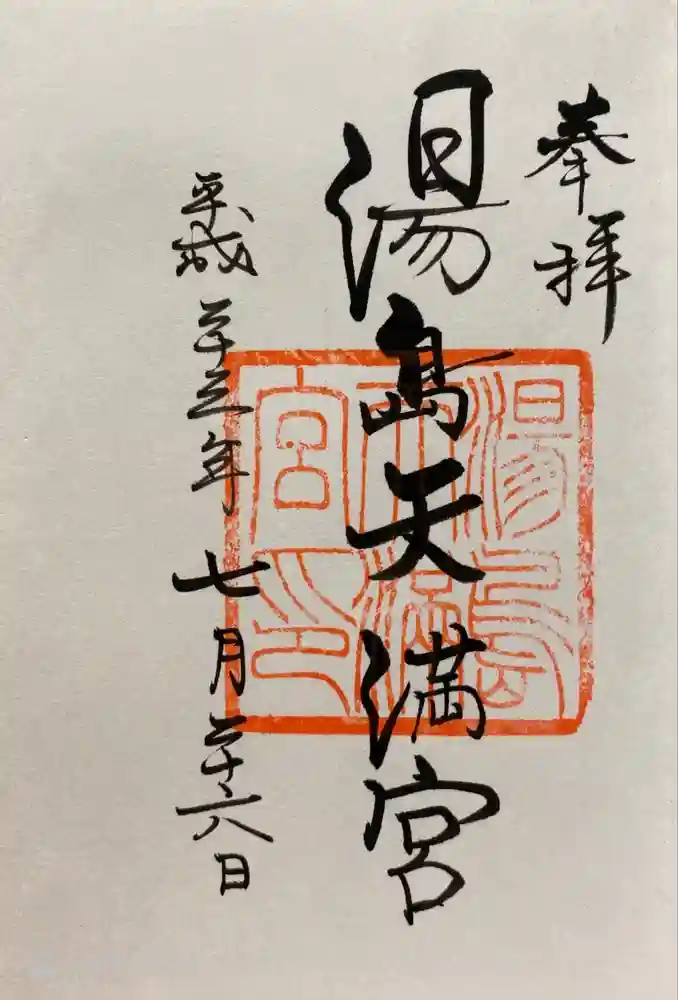 奉拝
湯島天満宮
平成二十年七月二十六日
湯島
天満
宮印